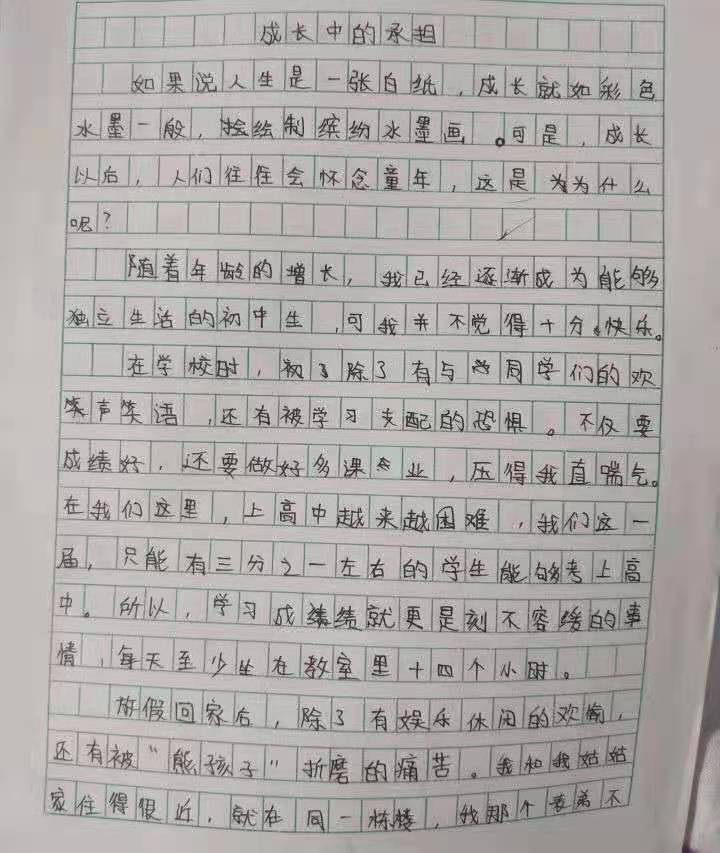 成长中的承担
如果说人生是一张白纸，成长就如彩色
水墨一般，描绘制缤纷水墨画。可是，成长
以后，人们往往会怀念童年，这是为为什么
呢？
随着年龄的增长，我已经逐渐成为能够
独立生活的初中生，可我并不觉得十分快乐。
在学校时，初了除了有与同学们的欢
笑声笑语，还有被学习支配的恐惧。不仅要
成绩好，还要做好多课业，压得我直喘气。
在我们这里，上高中越来越困难，我们这一
届，只能有三分之一左右的学生能够考上高
中。所以，学习成绩就更是刻不容缓的事
情，每天至少坐在教室里十四个小时。
放假回家后，除了有娱乐休闲的欢愉，
还有被“熊孩子”折磨的痛苦。我和我姑姑
家住得很近，就在同一栋楼，我那个表弟不